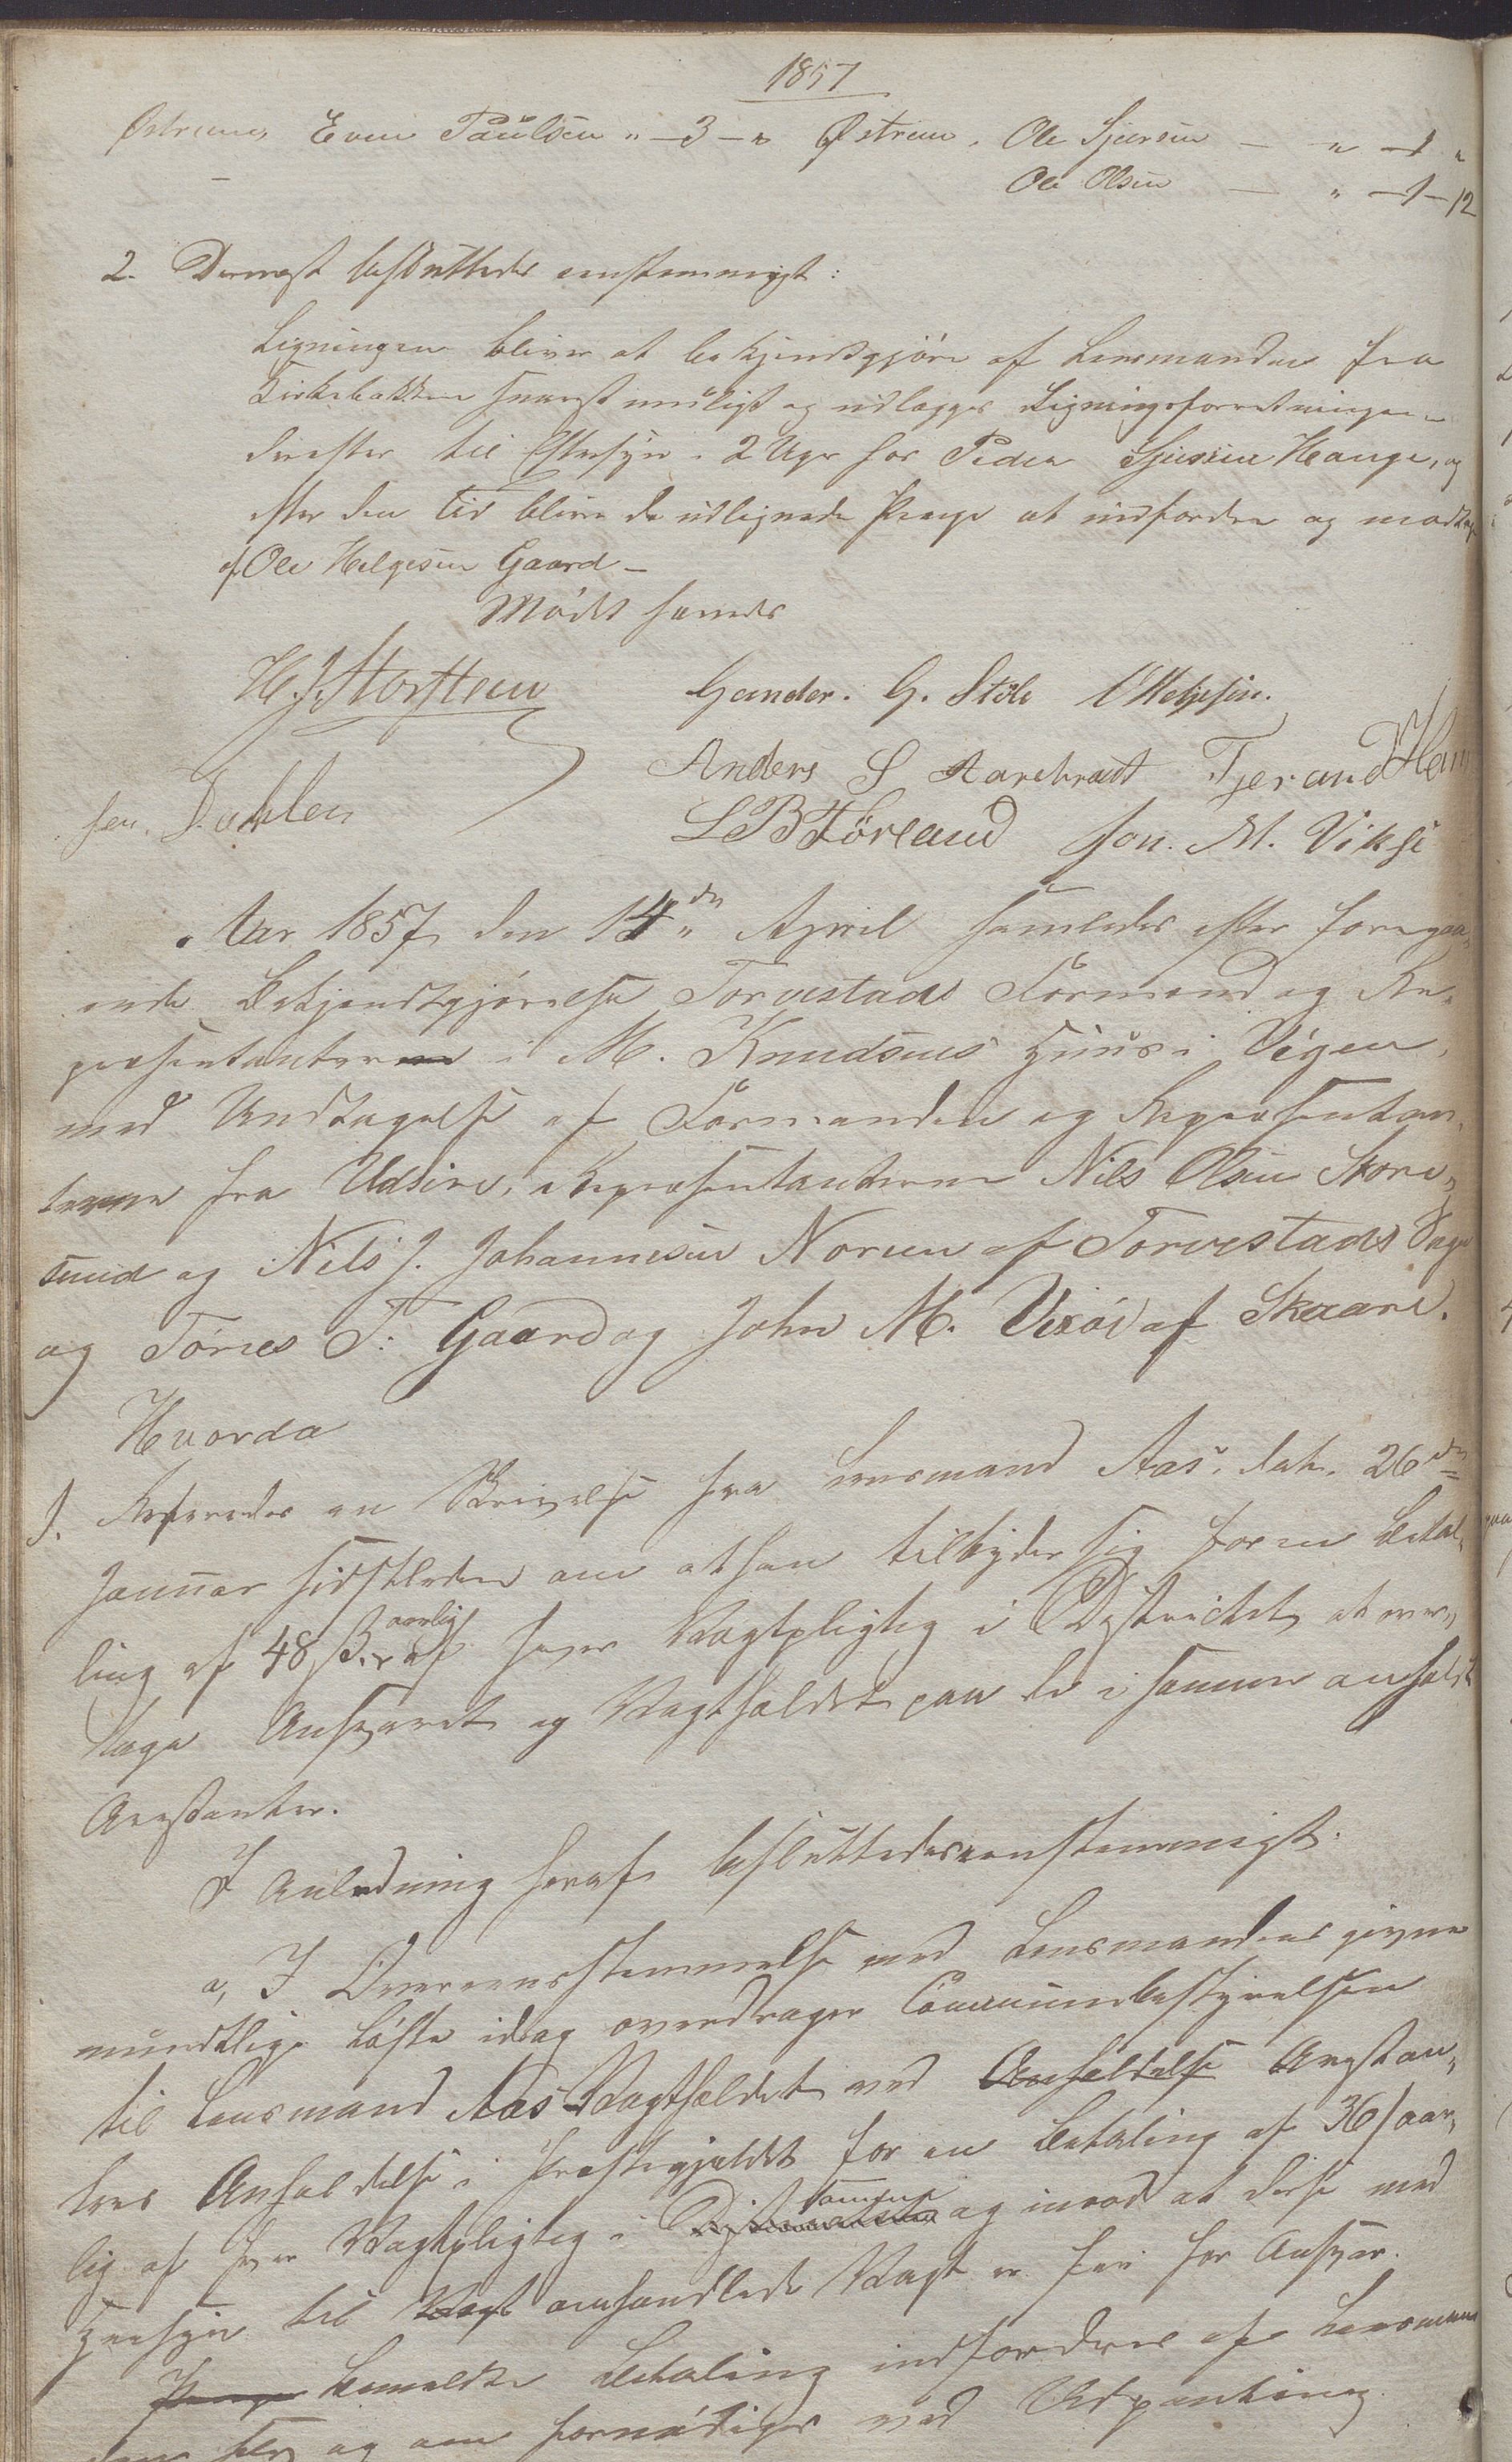 1857
Østrem, Even Paulsen " – 3 – " Østrem, Ole Sjursen — " – 1 "
— Ole Olsen — " – 1 – 12
2. Dernæst besluttedes eenstemmigt:
Ligningen bliver at bekjendtgjøre af Lensmanden fra
Kirkebakken snarest muligt og udlægges Ligningsforretningen
derefter til Eftersyn i 2 Uger hos Peder Sjursen Hauge, og
efter den Tid blive de udlignede Penge at indfordre og modtage
af Ole Helgesen Gaard –
Mødet hævedes
H. J. Storsteen Gander. G. Støle O Helgesen.
Anders S Aarekradt Tjerand
Dahlen L B Førland Jon. M. Vikse
Aar 1857 den 14de April samledes efter foregaa-
ende Bekjendtgjørelse Torvestads Formænd og Re-
præsentanter i M. Knudsens Huus i Vigen,
med Undtagelse af Formanden og Repræsentan-
terne fra Udsire, Repræsentanterne Nils Olsen Store-
sund og Nils J. Johannesen Norem af Torvestads Sogn
og Tørres T. Gaard og John M. Vixøi af Skaare.
Hvorda
1. Refereredes en Skrivelse fra Lensmand Aas, dat. 26de
Januar sidstleden om at han tilbyder sig for en Beta-
ling af 48 ß. aarlig af hver Vagtpligtig i Distriktet at over-
tage Ansvaret og Vagtholdet paa de i samme anholdte
Arrestanter.
I Anledning heraf besluttedes eenstemmigt:
a, I Overeensstemmelse med Lensmandens givne
mundtlige Løfte idag overdrager Communebestyrelsen
til Lensmand Aas Vagtholdet ved Anholdelse Arestan-
ters Anholdelse i Præstegjeldet for en Betaling af 36 ß aar-
lig af hver Vagtpligtig i samme og imod at disse med
Hensyn til Vagt omhandlede Vagt er fri for Ansvar.
Penge bemeldte Betaling indfordres af Lensman-
den selv og om fornødiges ved Udpantning.